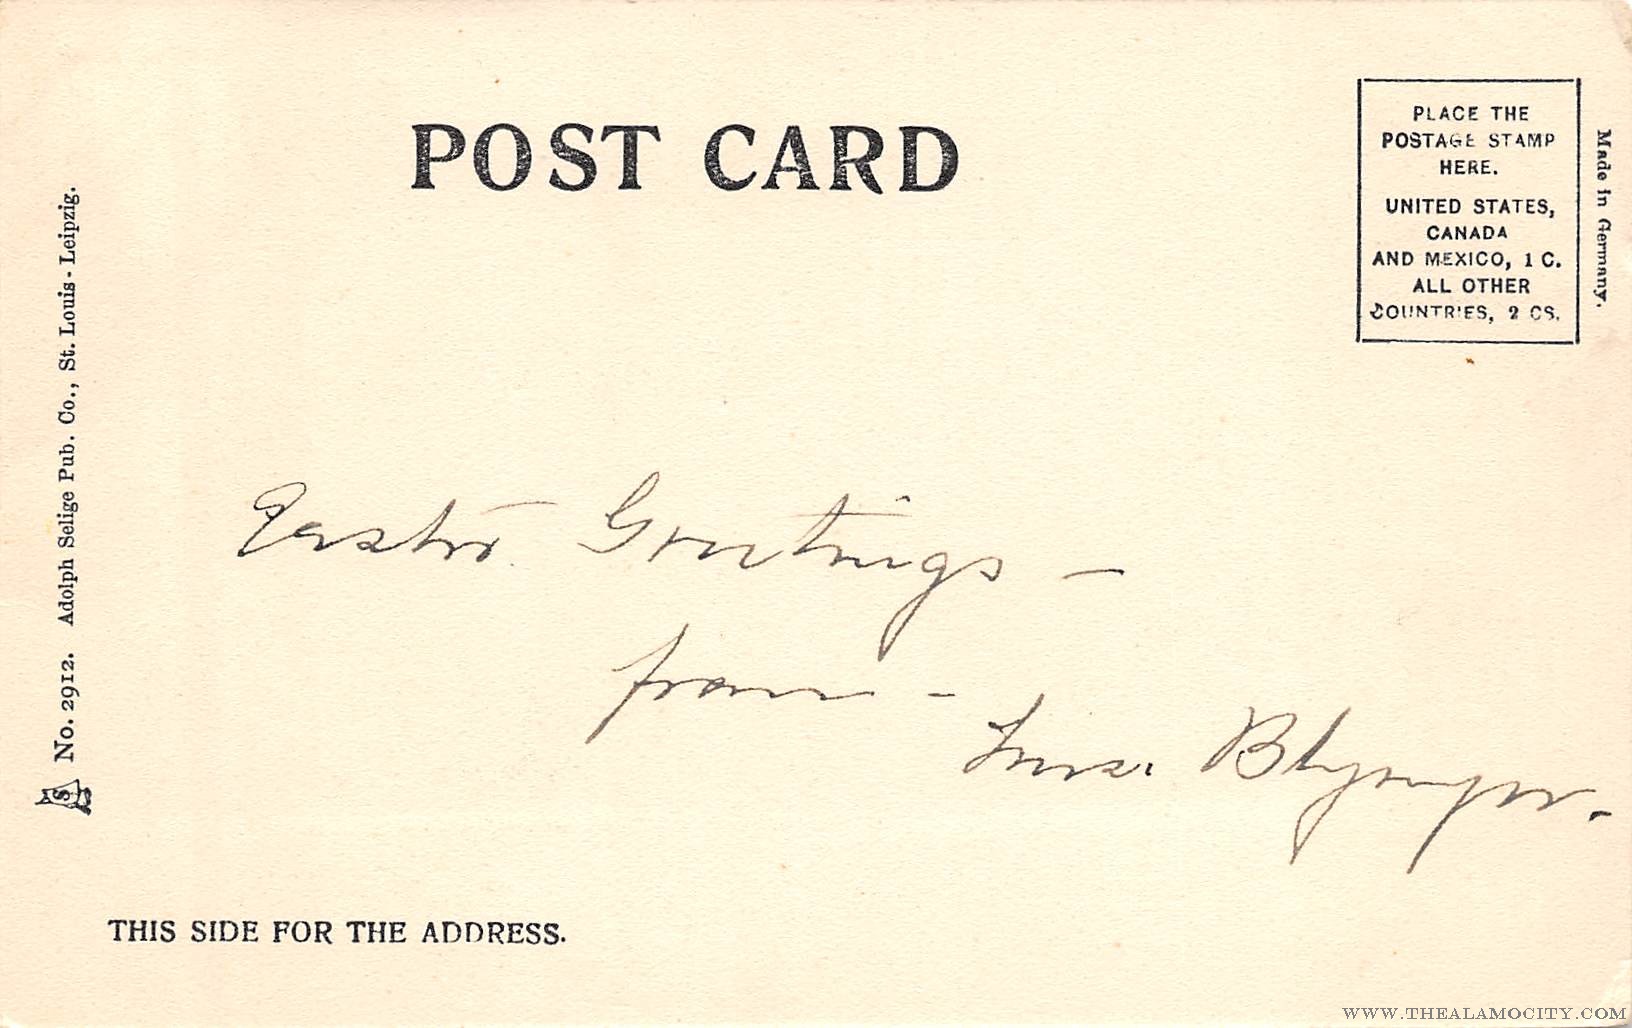 POST CARD
PLACE THE
POSTAGE STAMP
HERE.
UNITED STATES,
CANADA
AND MEXICO, 1 C.
ALL OTHER
COUNTRIES, 2 CS.
Made in Germany.
No. 2912. Adolph Selige Pub. Co., St. Louis - Leipzig.
S
Easter Greetings -
from -
THIS SIDE FOR THE ADDRESS.
WWW.THEALAMOCITY.COM